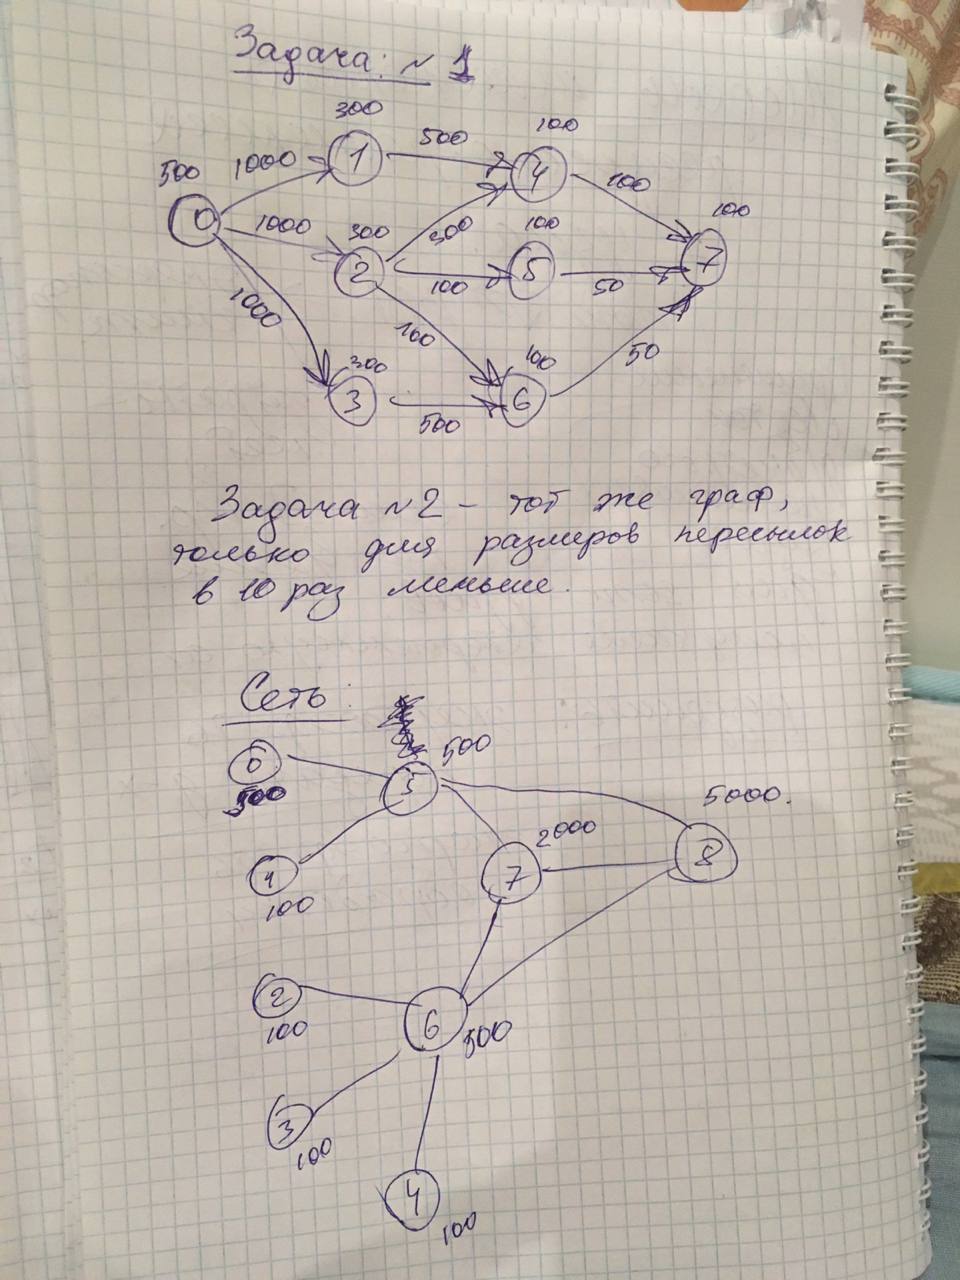 Задача: № 1
300
500
100
500
1000
1
4
100
100
0
1000
300
300
100
2
5
7
100
50
1000
100
50
300
100
3
6
500
Задача №2 - тот же граф,
только для размеров пересылок
в 10 раз меньше.
Сеть:
500
0
5
5000.
500
2000
8
1
7
100
2
6
100
500
3
100
4
100